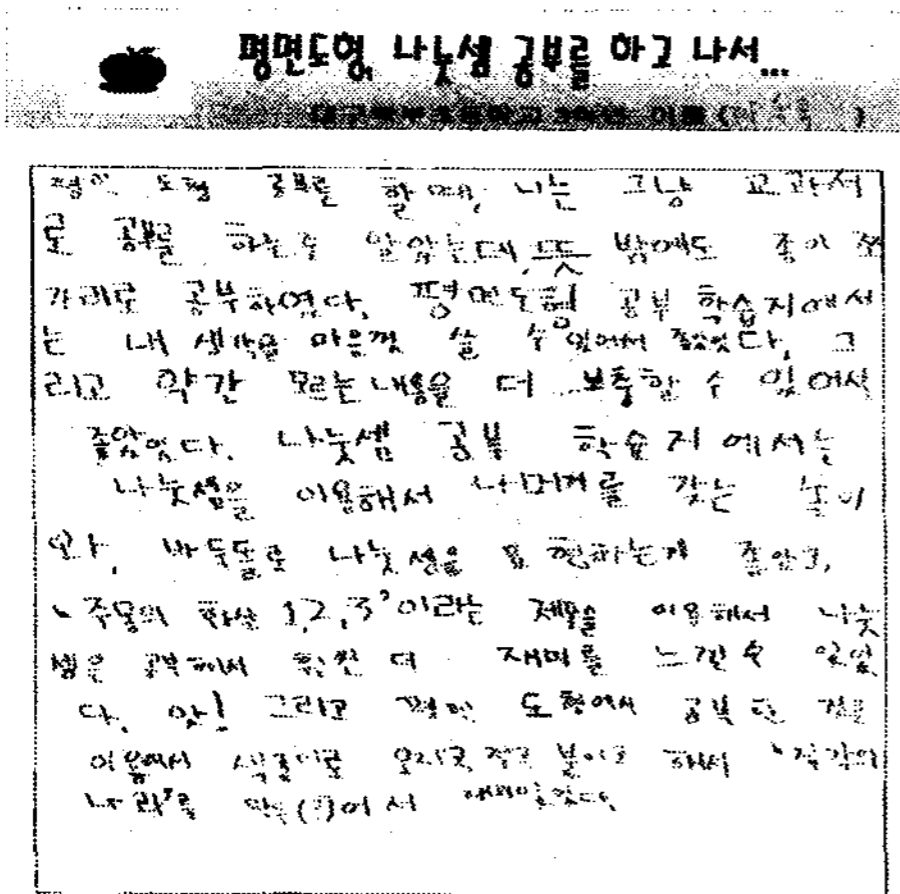 평면도형, 나눗셈 공부를 하고 나서...
이름 ( )
평면 도형 공부를 할 때, 나는 그냥 교과서
로 공부를 하는 줄 알았는데, 뜻밖에도 종이 쪼
가리로 공부하였다. 평면도형 공부 학습지에서
는 내 생각을 마음껏 쓸 수 있어서 좋았다. 그
리고 약간 모르는 내용을 더 보충할 수 있어서
좋았었다. 나눗셈 공부 학습지에서는
나눗셈을 이용해서 나머지를 갖는 놀이
와, 바둑돌로 나눗셈을 표현하는게 좋았고,
'주몽의 화살 1,2,3'이라는 제목을 이용해서 나눗
셈을 공부해서 훨씬 더 재미를 느낄 수 있었
다. 앗! 그리고 평면 도형에서 공부 한 것을
이용해서 색종이로 오리고, 접고 붙이고 해서 '직각의
나라'를 만(?)어서 재미있었다.